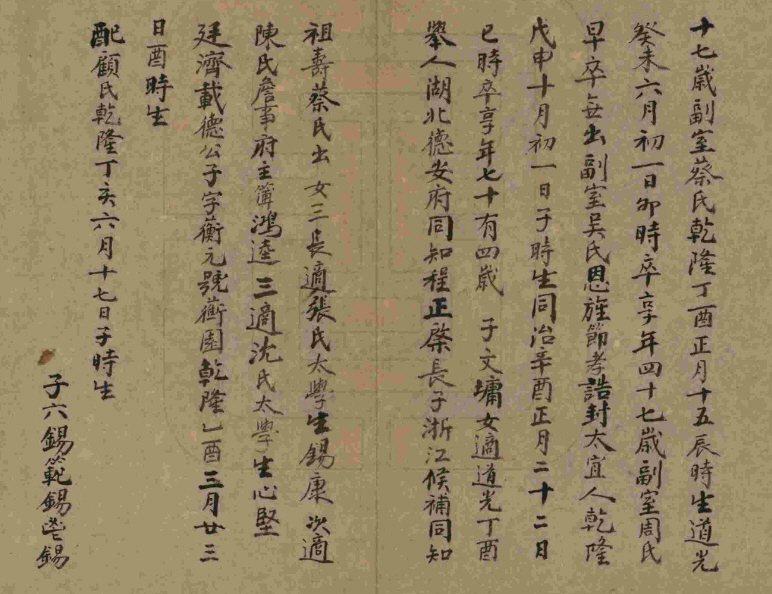 十七歲副室蔡氏乾隆丁酉正月十五辰時生道光
癸未六月初一日卯時卒享年四十七歲副室周氏
早卒無出副室吳氏恩旌節孝誥封太宜人乾隆
戊申十月初一日子時生同治辛酉正月二十二日
巳時卒享年七十有四歲 子文墉女適道光丁酉
舉人湖北德安府同知程正棨長子浙江候補同知
祖壽蔡氏出女三長適張氏太學生錫康次適
陳氏詹事府主簿鴻逵三適沈氏太學生心堅
廷濟載德公子字蘅元號蘅園乾隆乙酉三月廿三
日酉時生
配顧氏乾隆丁亥六月十七日子時生
子六錫範錫鬯錫